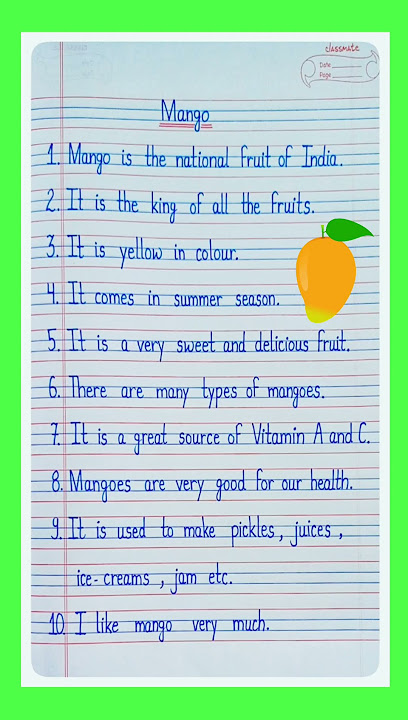 classmate
Date
Page
Mango
1. Mango is the national fruit of India.
2. It is the king of all the fruits.
3. It is yellow in colour.
4. It comes in summer season.
5. It is a very sweet and delicious fruit.
6. There are many types of mangoes.
7. It is a great source of Vitamin A and C.
8. Mangoes are very good for our health.
9. It is used to make pickles, juices,
ice-creams, jam etc.
10. I like mango very much.